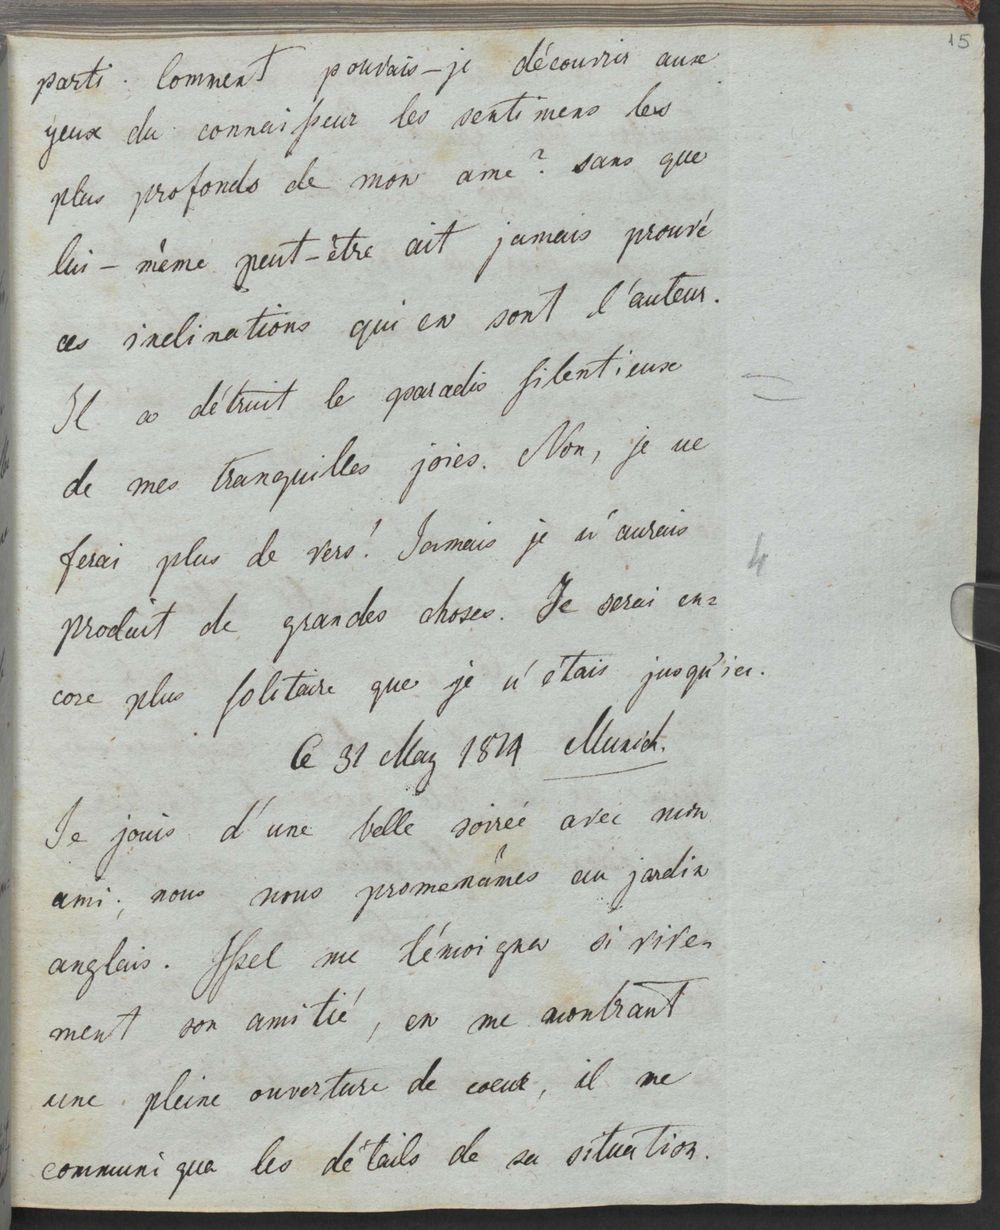 15
parti. Comment pouvais-je découvrir aux
yeux du connaisseur les sentimens les
plus profonds de mon ame? sans que
lui-même peut-être ait jamais prouvé
ces inclinations qui en sont l'auteur.
Il a détruit le paradis silentieux
de mes tranquilles joies. Non, je ne
ferai plus de vers! Jamais je n'aurais
produit de grandes choses. Je serai en=
core plus solitaire que je n'étais jusqu'ici.
4
Ce 31 May 1814 Munich.
Je jouis d'une belle soirée avec mon
ami; nous nous promenâmes au jardin
anglais. Issel me témoigna si vive-
ment son amitié, en me montrant
une pleine ouverture de coeur, il me
communiqua les détails de sa situation.